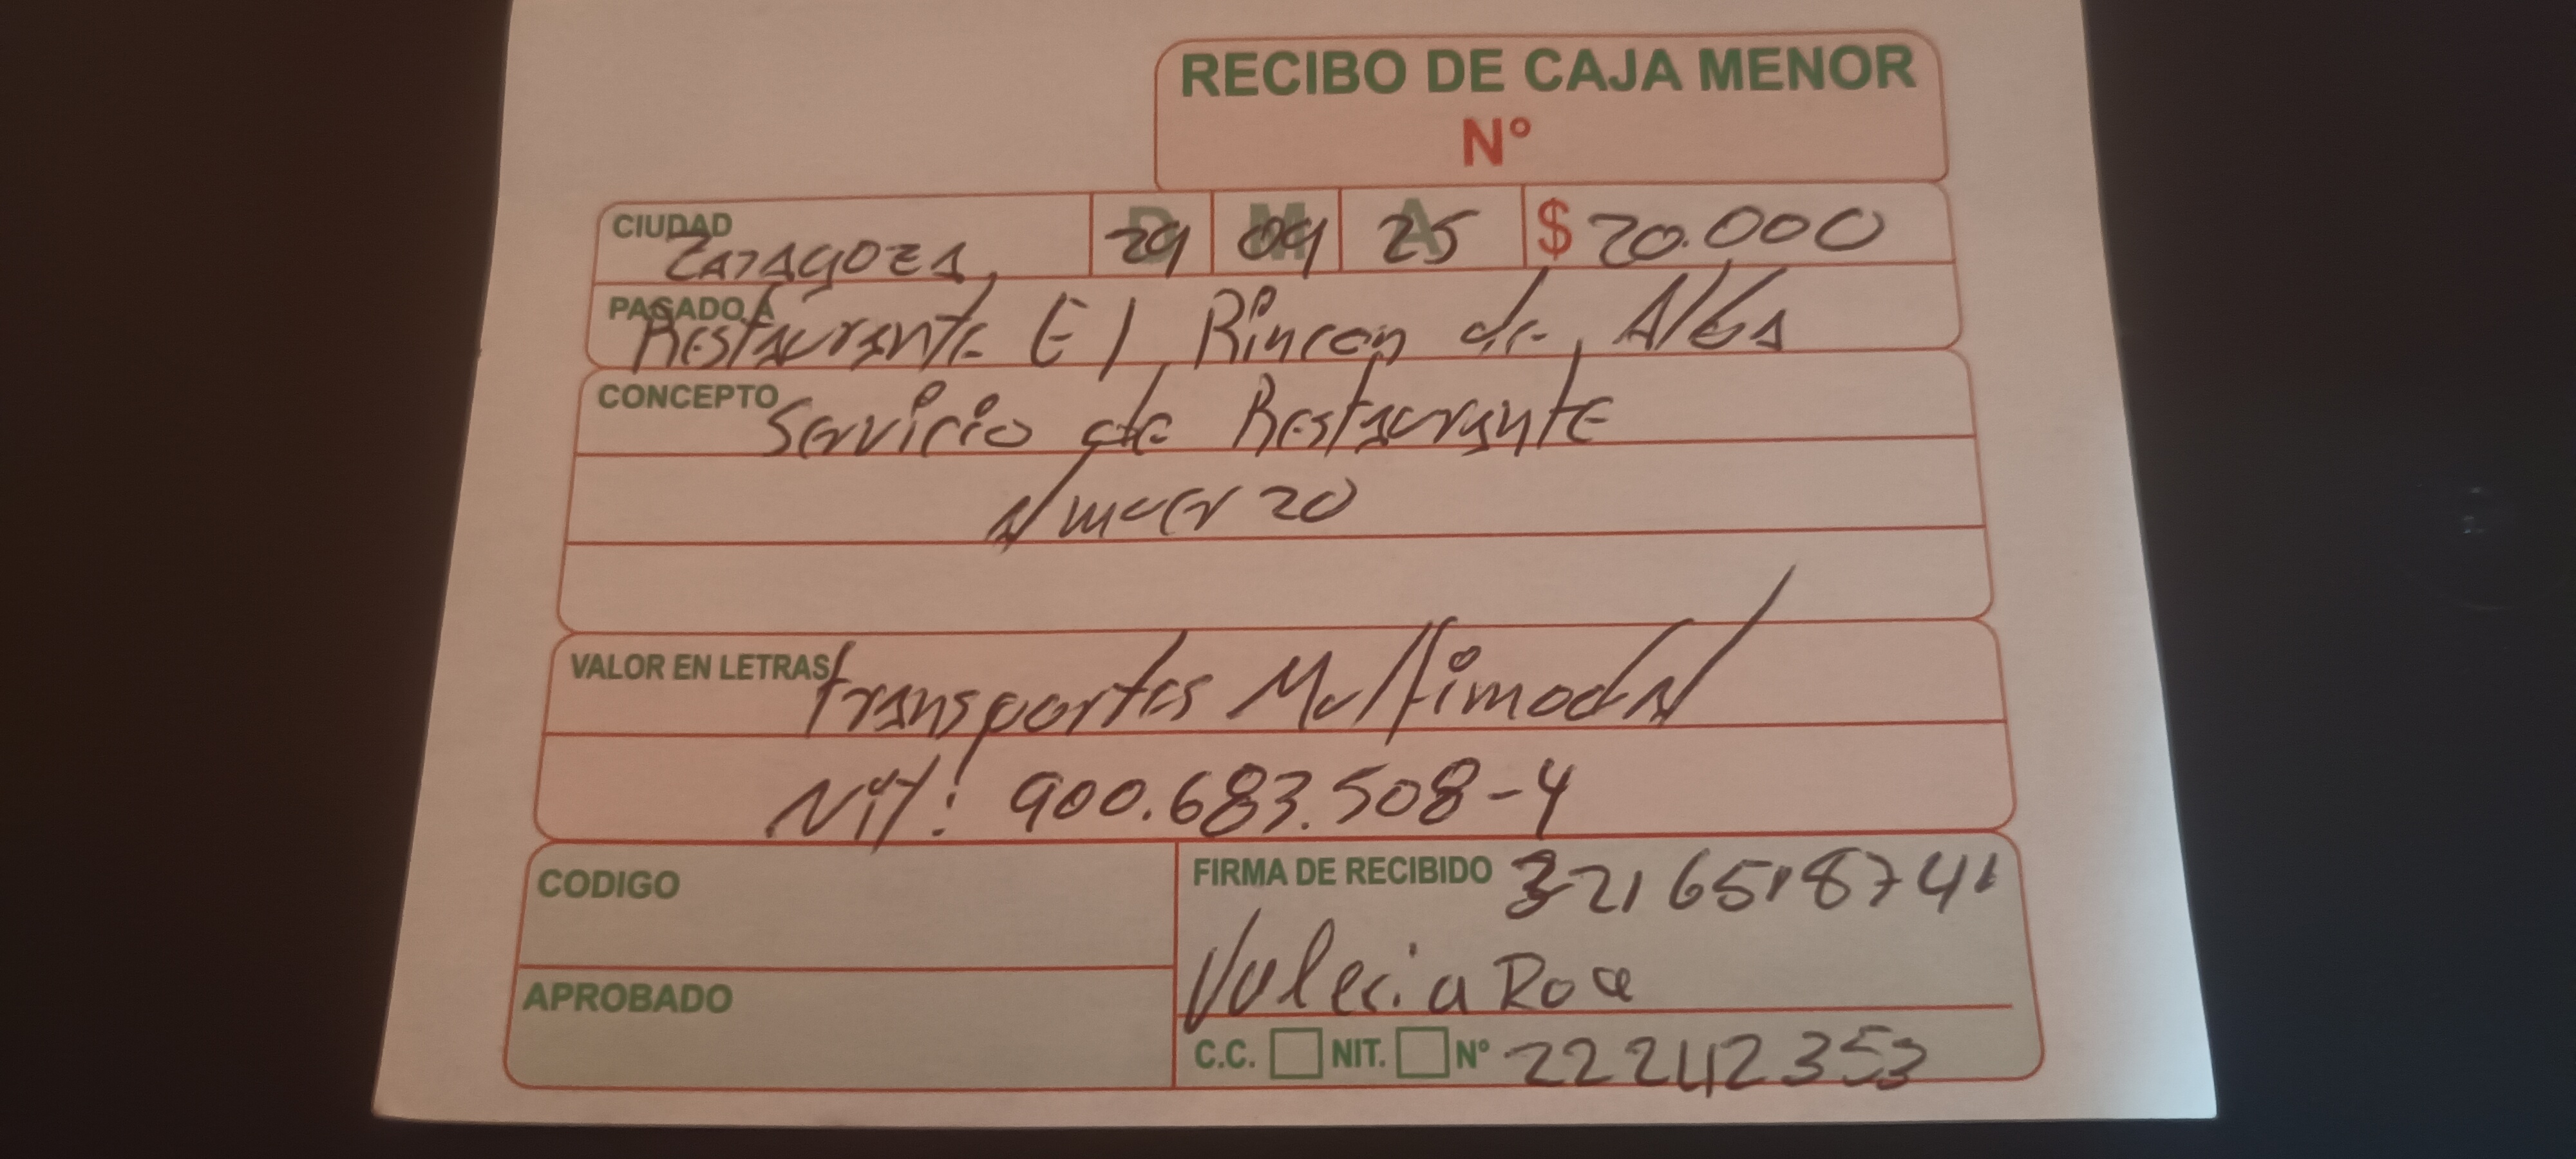 RECIBO DE CAJA MENOR
N°
CIUDAD Zaragoza, D 29 M 09 A 25 $ 20.000
PASADO A Restaurante El Rincon de Alba
CONCEPTO Servicio de Restaurante
Almuerzo
VALOR EN LETRAS Transportes Multimodal
Nit: 900.683.508-4
CODIGO
FIRMA DE RECIBIDO 3216518741
Valeria
APROBADO
C.C. NIT. N° 22242353